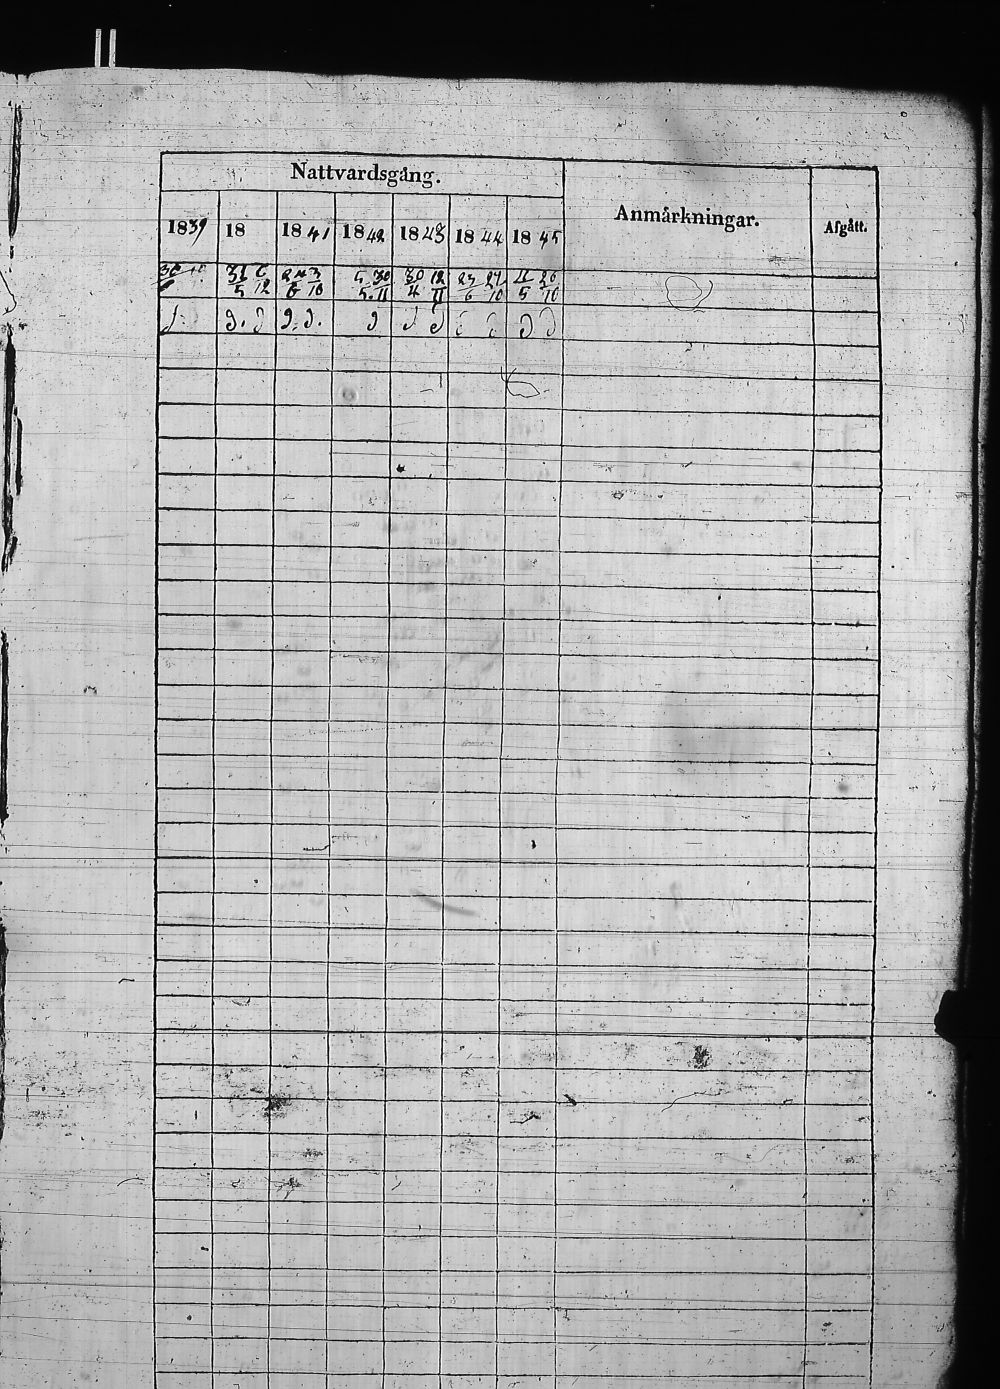 Nattvardsgång.
Anmärkningar.
Afgått.
1839 18 1841 1842 1843 1844 1845
31/5 6/12 24/6 3/10 5/5 30/11 30/4 12/11 23/6 27/10 11/5 26/10